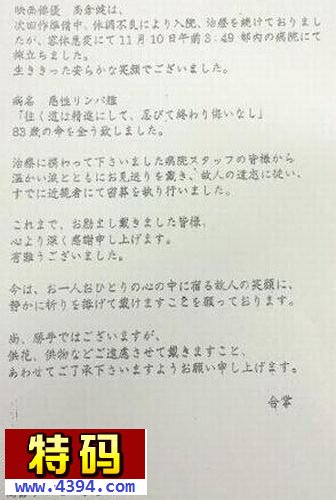 映画俳優 高倉健は、
次回作準備中、体調不良により入院、治療を続けておりまし
たが、容体急変にて11月10日午前3:49都内の病院にて
旅立ちました。
生ききった安らかな笑顔でございました。
病名 悪性リンパ腫
「往く道は精進にして、忍びて終わり悔いなし」
83歳の命を全う致しました。
治療に携わって下さいました病院スタッフの皆様から
温かい涙とともにお見送りを戴き、故人の遺志に従い、
すでに近親者にて密葬を執り行いました。
これまで、お励まし戴きました皆様、
心より深く感謝申し上げます。
有難うございました。
今は、お一人おひとりの心の中に宿る故人の笑顔に、
静かに祈りを捧げて戴けますことを願っております。
尚、勝手ではございますが、
供花、供物などご遠慮させて戴きますこと、
あわせてご了承下さいますようお願い申し上げます。
合掌
特码
www.4394.com